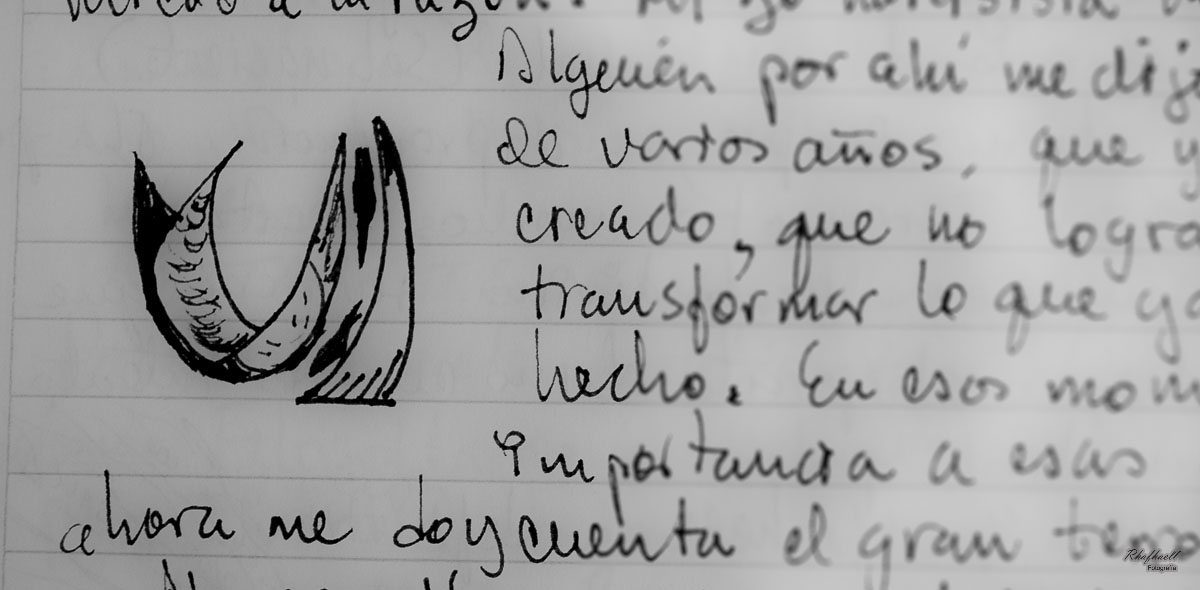 a la razón. Mi yo narcisista
Alguien por ahí me dij
de varios años, que y
creado, que no logra
transformar lo que ya
hecho. En esos mom
importancia a esas
ahora me doy cuenta el gran
Rhafhaell
Fotografía